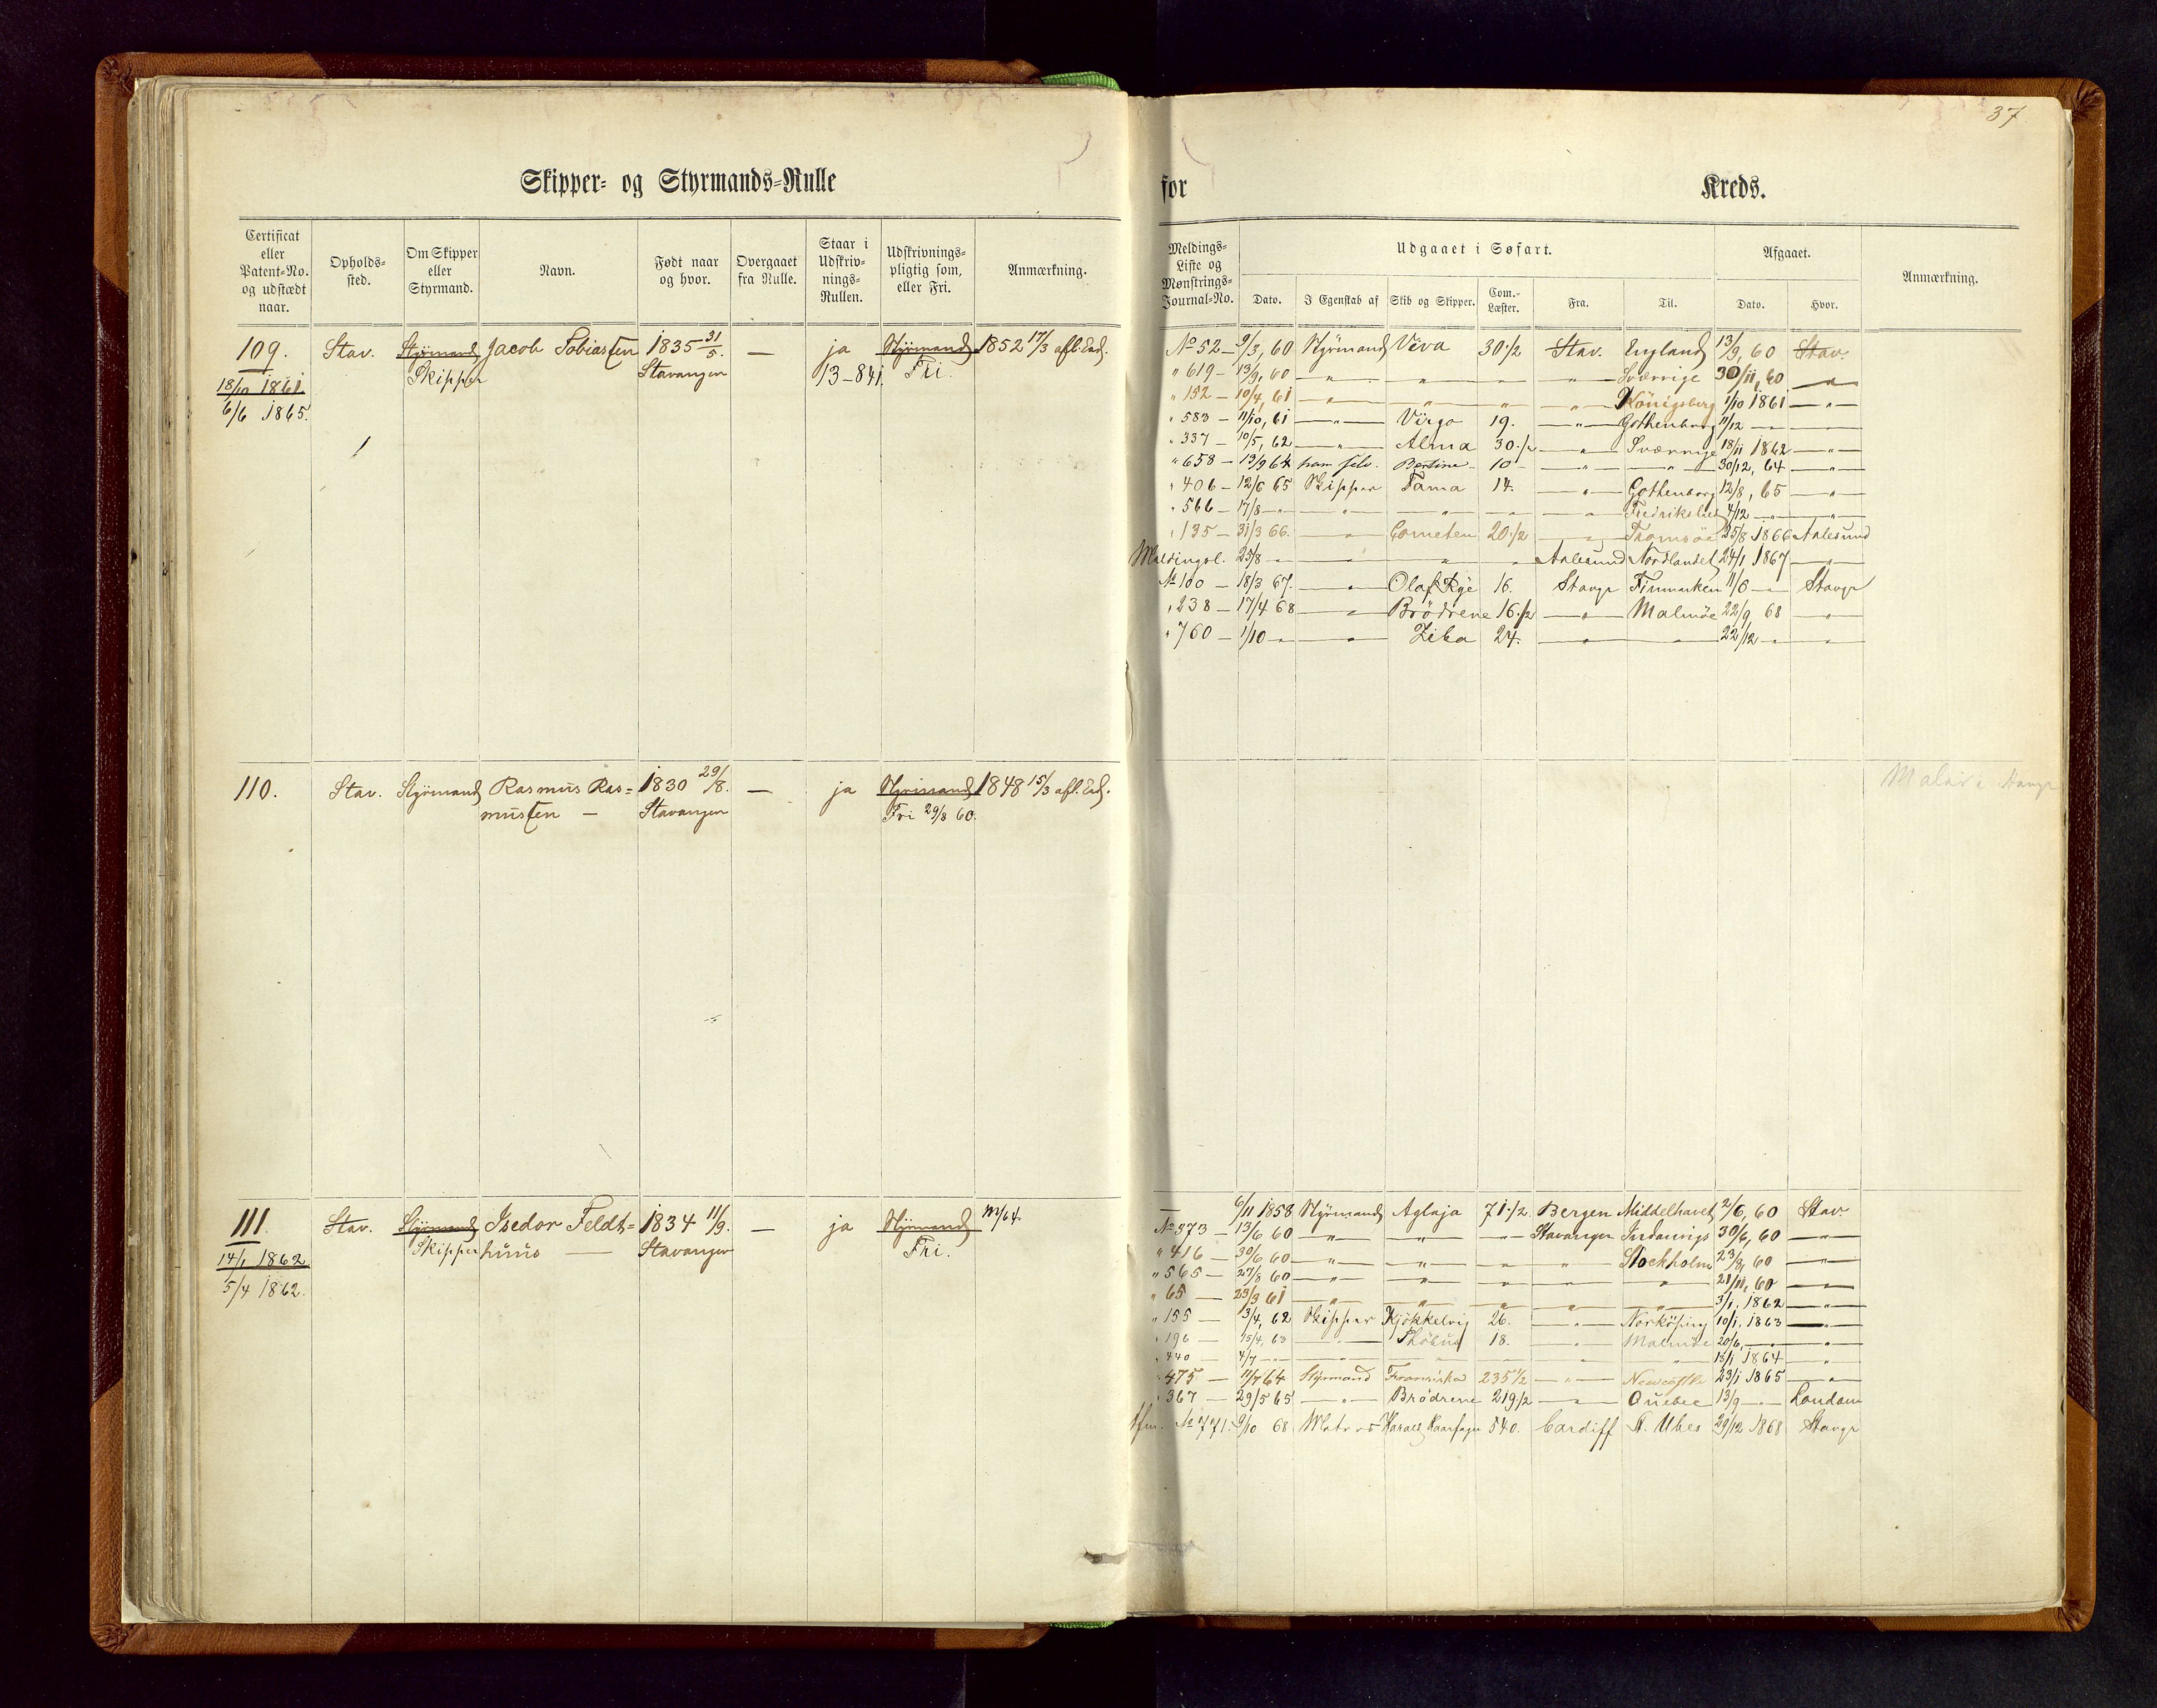 37
Skipper- og Styrmands-Rulle for Kreds.
Certificat eller Patent-No. og udstædt naar. Opholds-sted. Om Skipper eller Styrmand. Navn. Født naar og hvor. Overgaaet fra Rulle. Staar i Udskriv-nings-Rullen. Udskrivnings-pligtig som, eller Fri. Anmærkning.
Meldings-Liste og Mønstrings-Journal-No. Udgaaet i Søfart. Afgaaet. Anmærkning.
Dato. I Egenskab af Skib og Skipper. Com.-Læster. Fra. Til. Dato. Hvor.
109. Stav. Styrmand Jacob Tobiassen 1835 31/5. — ja Styrmand 1852 17/3 afl. Ed.
18/10 1861 Skipper Stavanger 13-841. Fri.
6/6 1865.
No 52 — 9/3, 60 Styrmand Viva 30 1/2 Stav. England 13/9, 60 Stav.
" 619 — 13/9, 60 — " — — " — " — " — Sverrige 30/11, 60 — " —
" 152 — 10/4, 61 — " — — " — " — " — Königsberg 1/10 1861 — " —
" 583 — 11/10, 61 — " — Virgo 19. — " — Gothenborg 11/12 — " —
" 337 — 10/5, 62 — " — Alma 30 1/2 — " — Sverrige 18/11 1862 — " —
" 658 — 13/9 64 ham selv. Bertine 10 — " — — " — 30/12, 64 — " —
" 406 — 12/6 65 Skipper Fama 14. — " — Gothenborg 12/8, 65 — " —
" 566 — 17/8 — " — " — — " — — " — Fredrikshald 4/12 — " — " —
" 135 — 31/3 66. — " — Cometen 20 1/2 — " — Tromsöe 25/8 1866 Aalesund
Meldingsl. 25/8 — " — — " — " — Aalesund Nordlandet 24/1 1867 — " —
No 100 — 18/3 67. — " — Olaf Rye 16. Stavgr Finmarken 11/6 — " — Stavgr
" 238 — 17/4 68 — " — Brödrene 16 1/2 — " — Malmöe 22/9 68 — " —
" 760 — 1/10 — " — " — Ziba 24. — " — — " — 22/12 — " — " —
110. Stav. Styrmand Rasmus Ras= 1830 29/8. — ja Styrmand 1848 15/3 afl. Ed.
mussen — Stavanger Fri 29/8 60.
111. Stav. Styrmand Isedor Feldt= 1834 11/9. — ja Styrmand
14/1 1862 Skipper huus — Stavanger Fri.
5/4 1862.
6/11 1858 Styrmand Aglaja 71 1/2. Bergen Middelhavet 2/6, 60 Stav
No 373 — 13/6 60 — " — — " — — " — Stavanger 30/6, 60 — " —
" 416 — 30/6 60 — " — — " — — " — " — Stockholm 23/8, 60 — " —
" 565 — 27/8 60 — " — " — " — " — " — 21/11, 60 — " —
" 65 — 23/3 61 — " — " — " — " — " — 3/1, 1862 — " —
" 155 — 3/4, 62 Skipper Kjökkelvig 26. — " — Norköping 10/1, 1863 — " —
" 196 — 15/4, 63 — " — Phöbus 18. — " — Malmöe 20/6, — " — " —
" 440 — 4/7 — " — " — — " — — " — " — 15/1 1864 — " —
" 475 — 11/7 64 Styrmand Fransiska 235 1/2 — " — Newcastle 23/1 1865 — " —
" 367 — 29/5 65 — " — Brödrene 219 1/2 — " — Quebec 13/9 — " — London
No 771. 9/10 68 Matros Harald Haarfager 540. Cardiff St. Ubes 29/12 1868 Stavgr